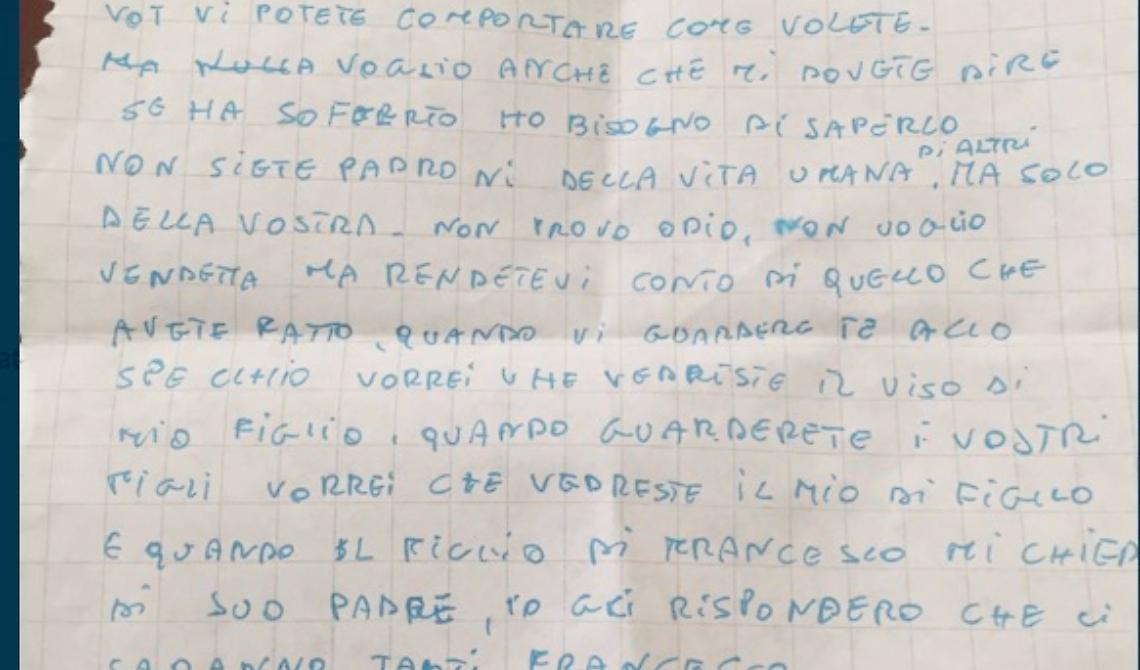 VOI VI POTETE COMPORTARE COME VOLETE.
MA NULLA VOGLIO ANCHE CHE MI DOVETE DIRE
SE HA SOFERTO HO BISOGNO DI SAPERLO
NON SIETE PADRONI DELLA VITA UMANA DI ALTRI, MA SOLO
DELLA VOSTRA. NON PROVO ODIO, NON VOGLIO
VENDETTA MA RENDETEVI CONTO DI QUELLO CHE
AVETE FATTO, QUANDO VI GUARDERETE ALLO
SPECCHIO VORREI CHE VEDRISTE IL VISO DI
MIO FIGLIO, QUANDO GUARDERETE I VOSTRI
FIGLI VORREI CHE VEDRESTE IL MIO DI FIGLIO
E QUANDO IL FIGLIO DI FRANCESCO MI CHIED
DI SUO PADRE, IO GLI RISPONDERO CHE CI
SARANNO TANTI FRANCESCO